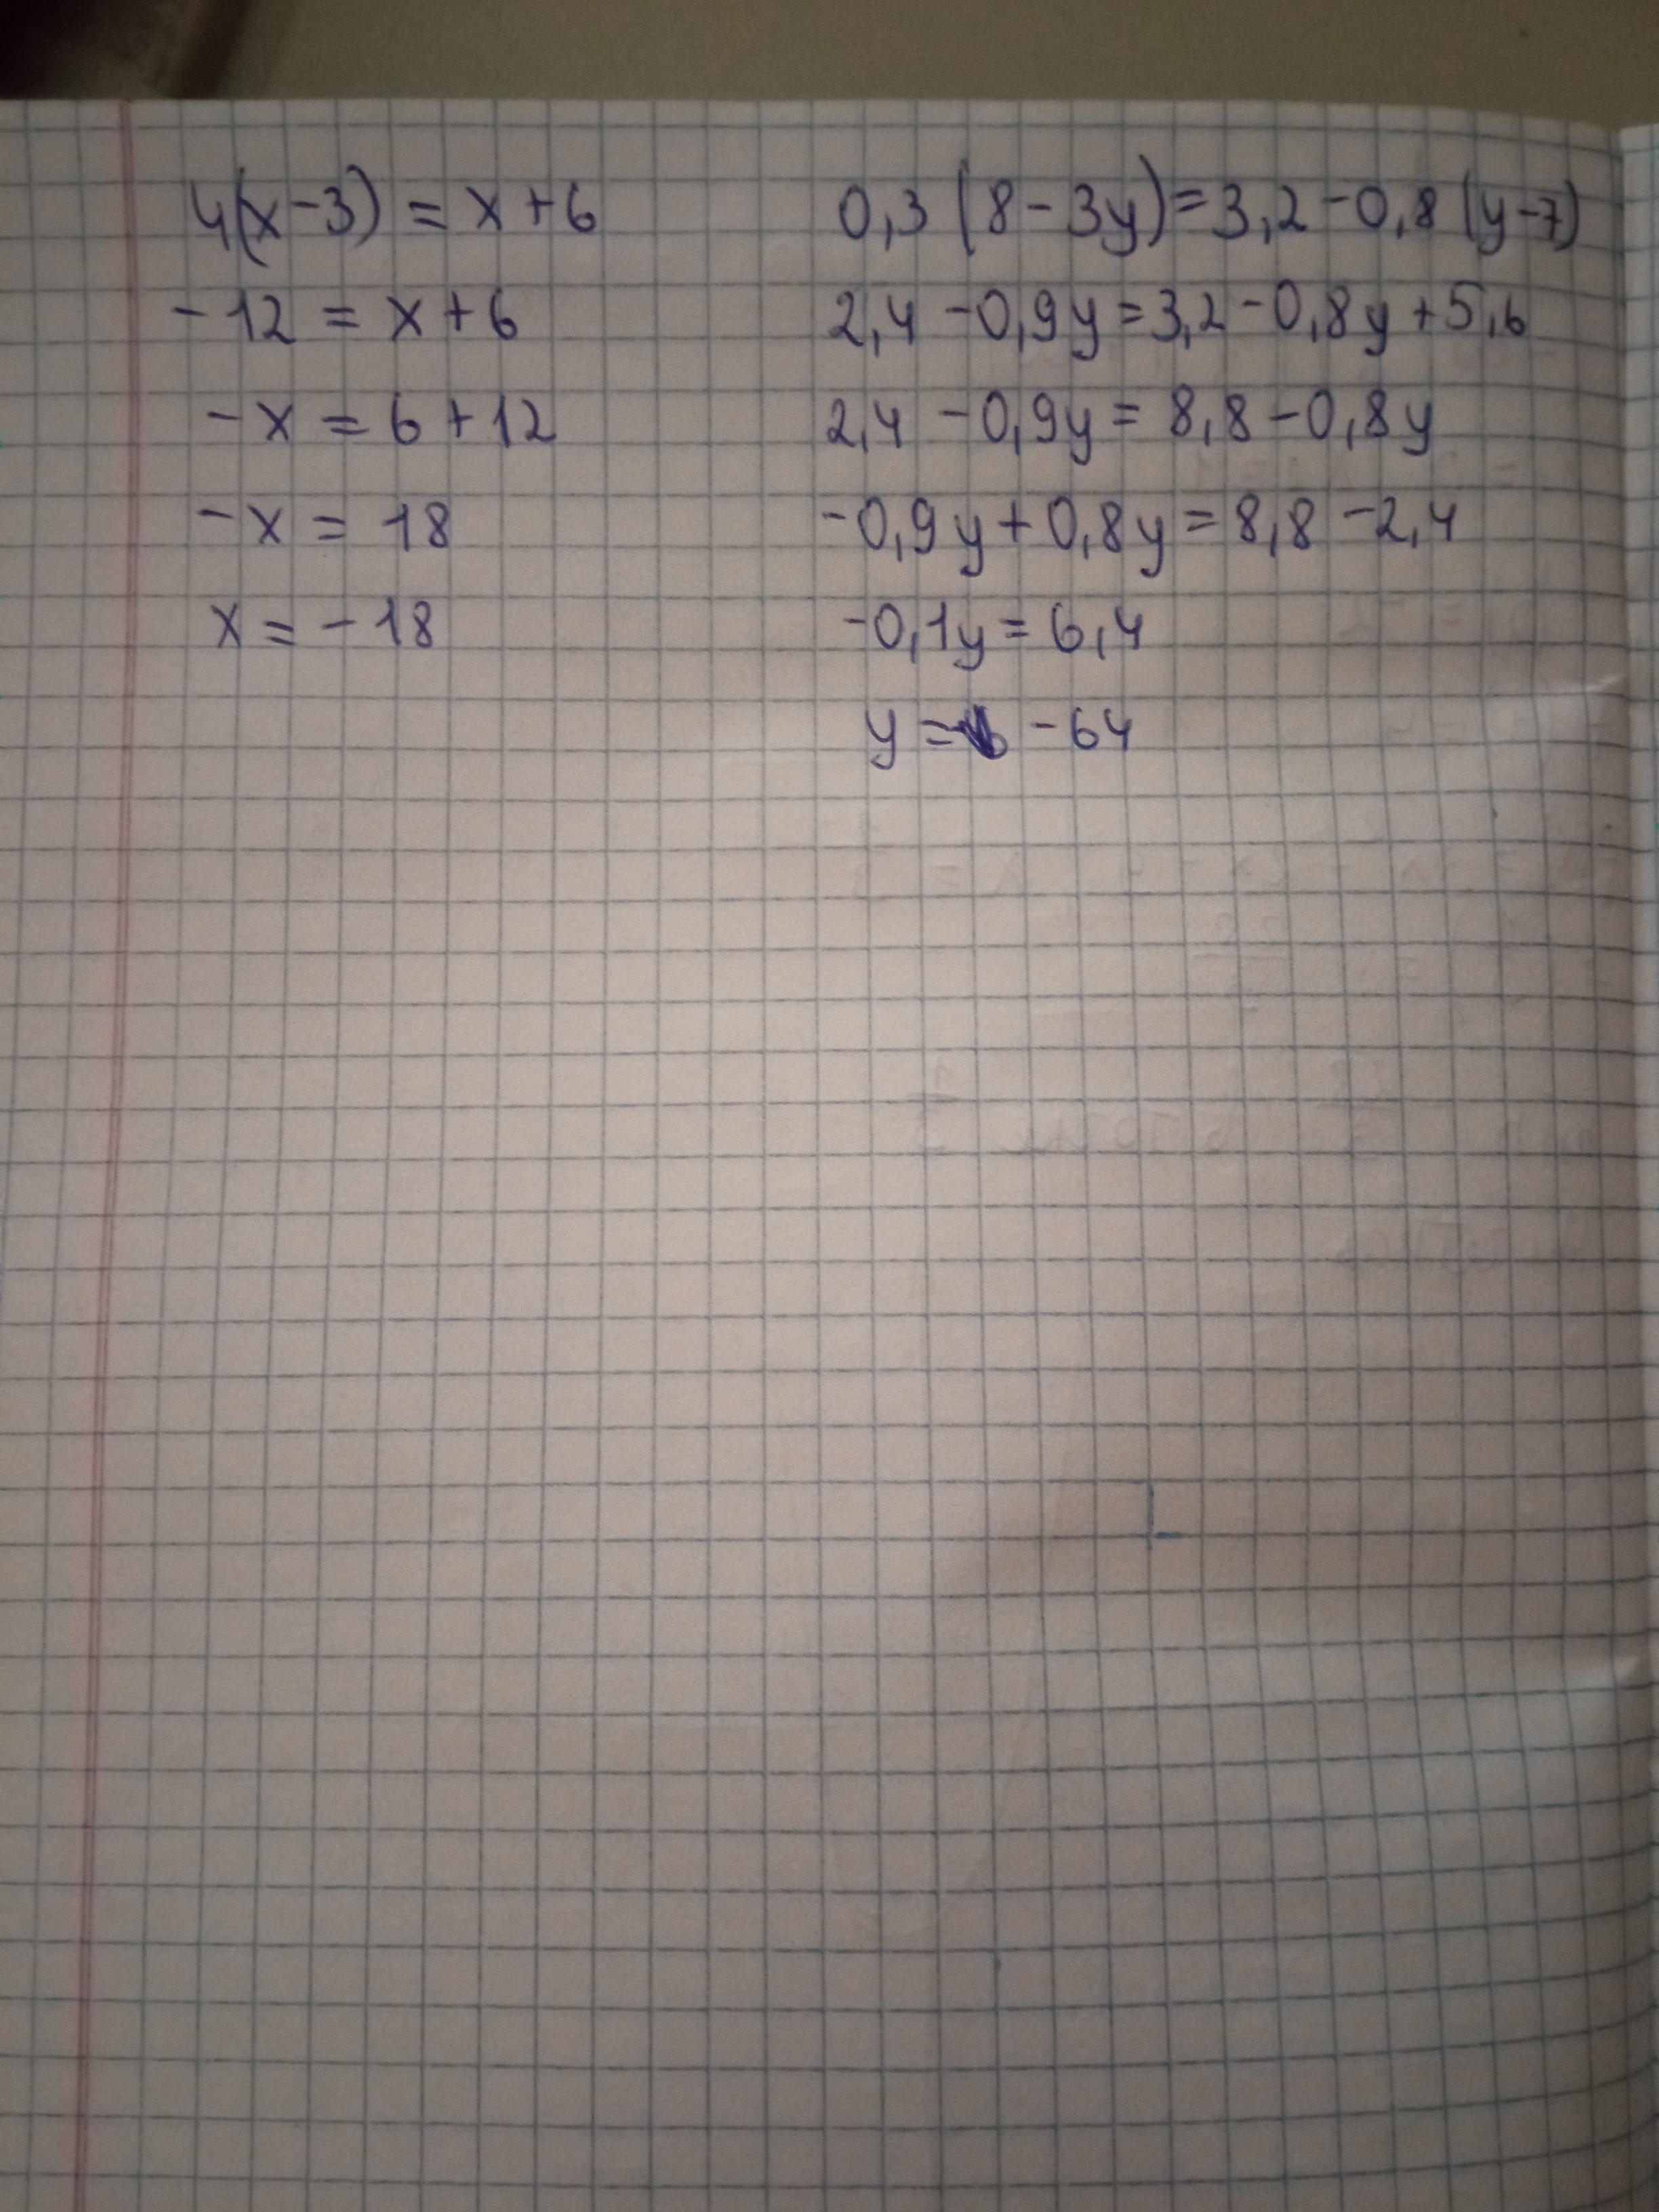 4(x-3) = x+6
-12 = x+6
-x = 6+12
-x = 18
x = -18
0,3(8-3y)=3,2-0,8(y-7)
2,4-0,9y=3,2-0,8y+5,6
2,4-0,9y=8,8-0,8y
-0,9y+0,8y=8,8-2,4
-0,1y=6,4
y = -64